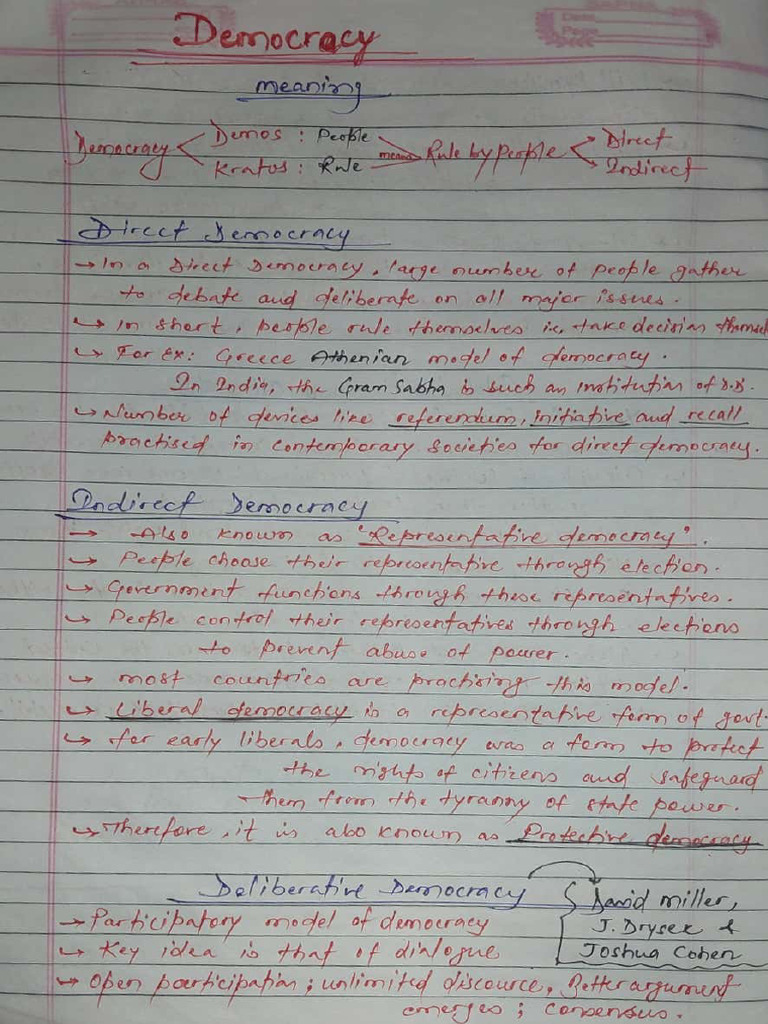 Democracy
meaning
Democracy < Demos : People
Kratos : Rule
means Rule by people < Direct
Indirect
Direct Democracy
→ In a Direct Democracy, large number of people gather
to debate and deliberate on all major issues.
→ In short, people rule themselves i.e. take decision themsel
→ For Ex: Greece Athenian model of democracy.
In India, the Gram Sabha is such an institution of D.D.
→ Number of devices like referendum, initiative and recall
practised in contemporary societies for direct democracy.
Indirect Democracy
→ Also known as "Representative democracy".
→ People choose their representative through election.
→ Government functions through these representatives.
→ People control their representatives through elections
to prevent abuse of power.
→ most countries are practising this model.
→ Liberal democracy is a representative form of govt.
→ for early liberals, democracy was a form to protect
the rights of citizens and safeguard
them from the tyranny of state power.
→ Therefore, it is also known as Protective democracy
Deliberative Democracy { David miller,
J. Drysek &
Joshua Cohen
→ Participatory model of democracy
→ Key idea is that of dialogue
→ Open participation; unlimited discourse, Better argument
emerges; consensus.